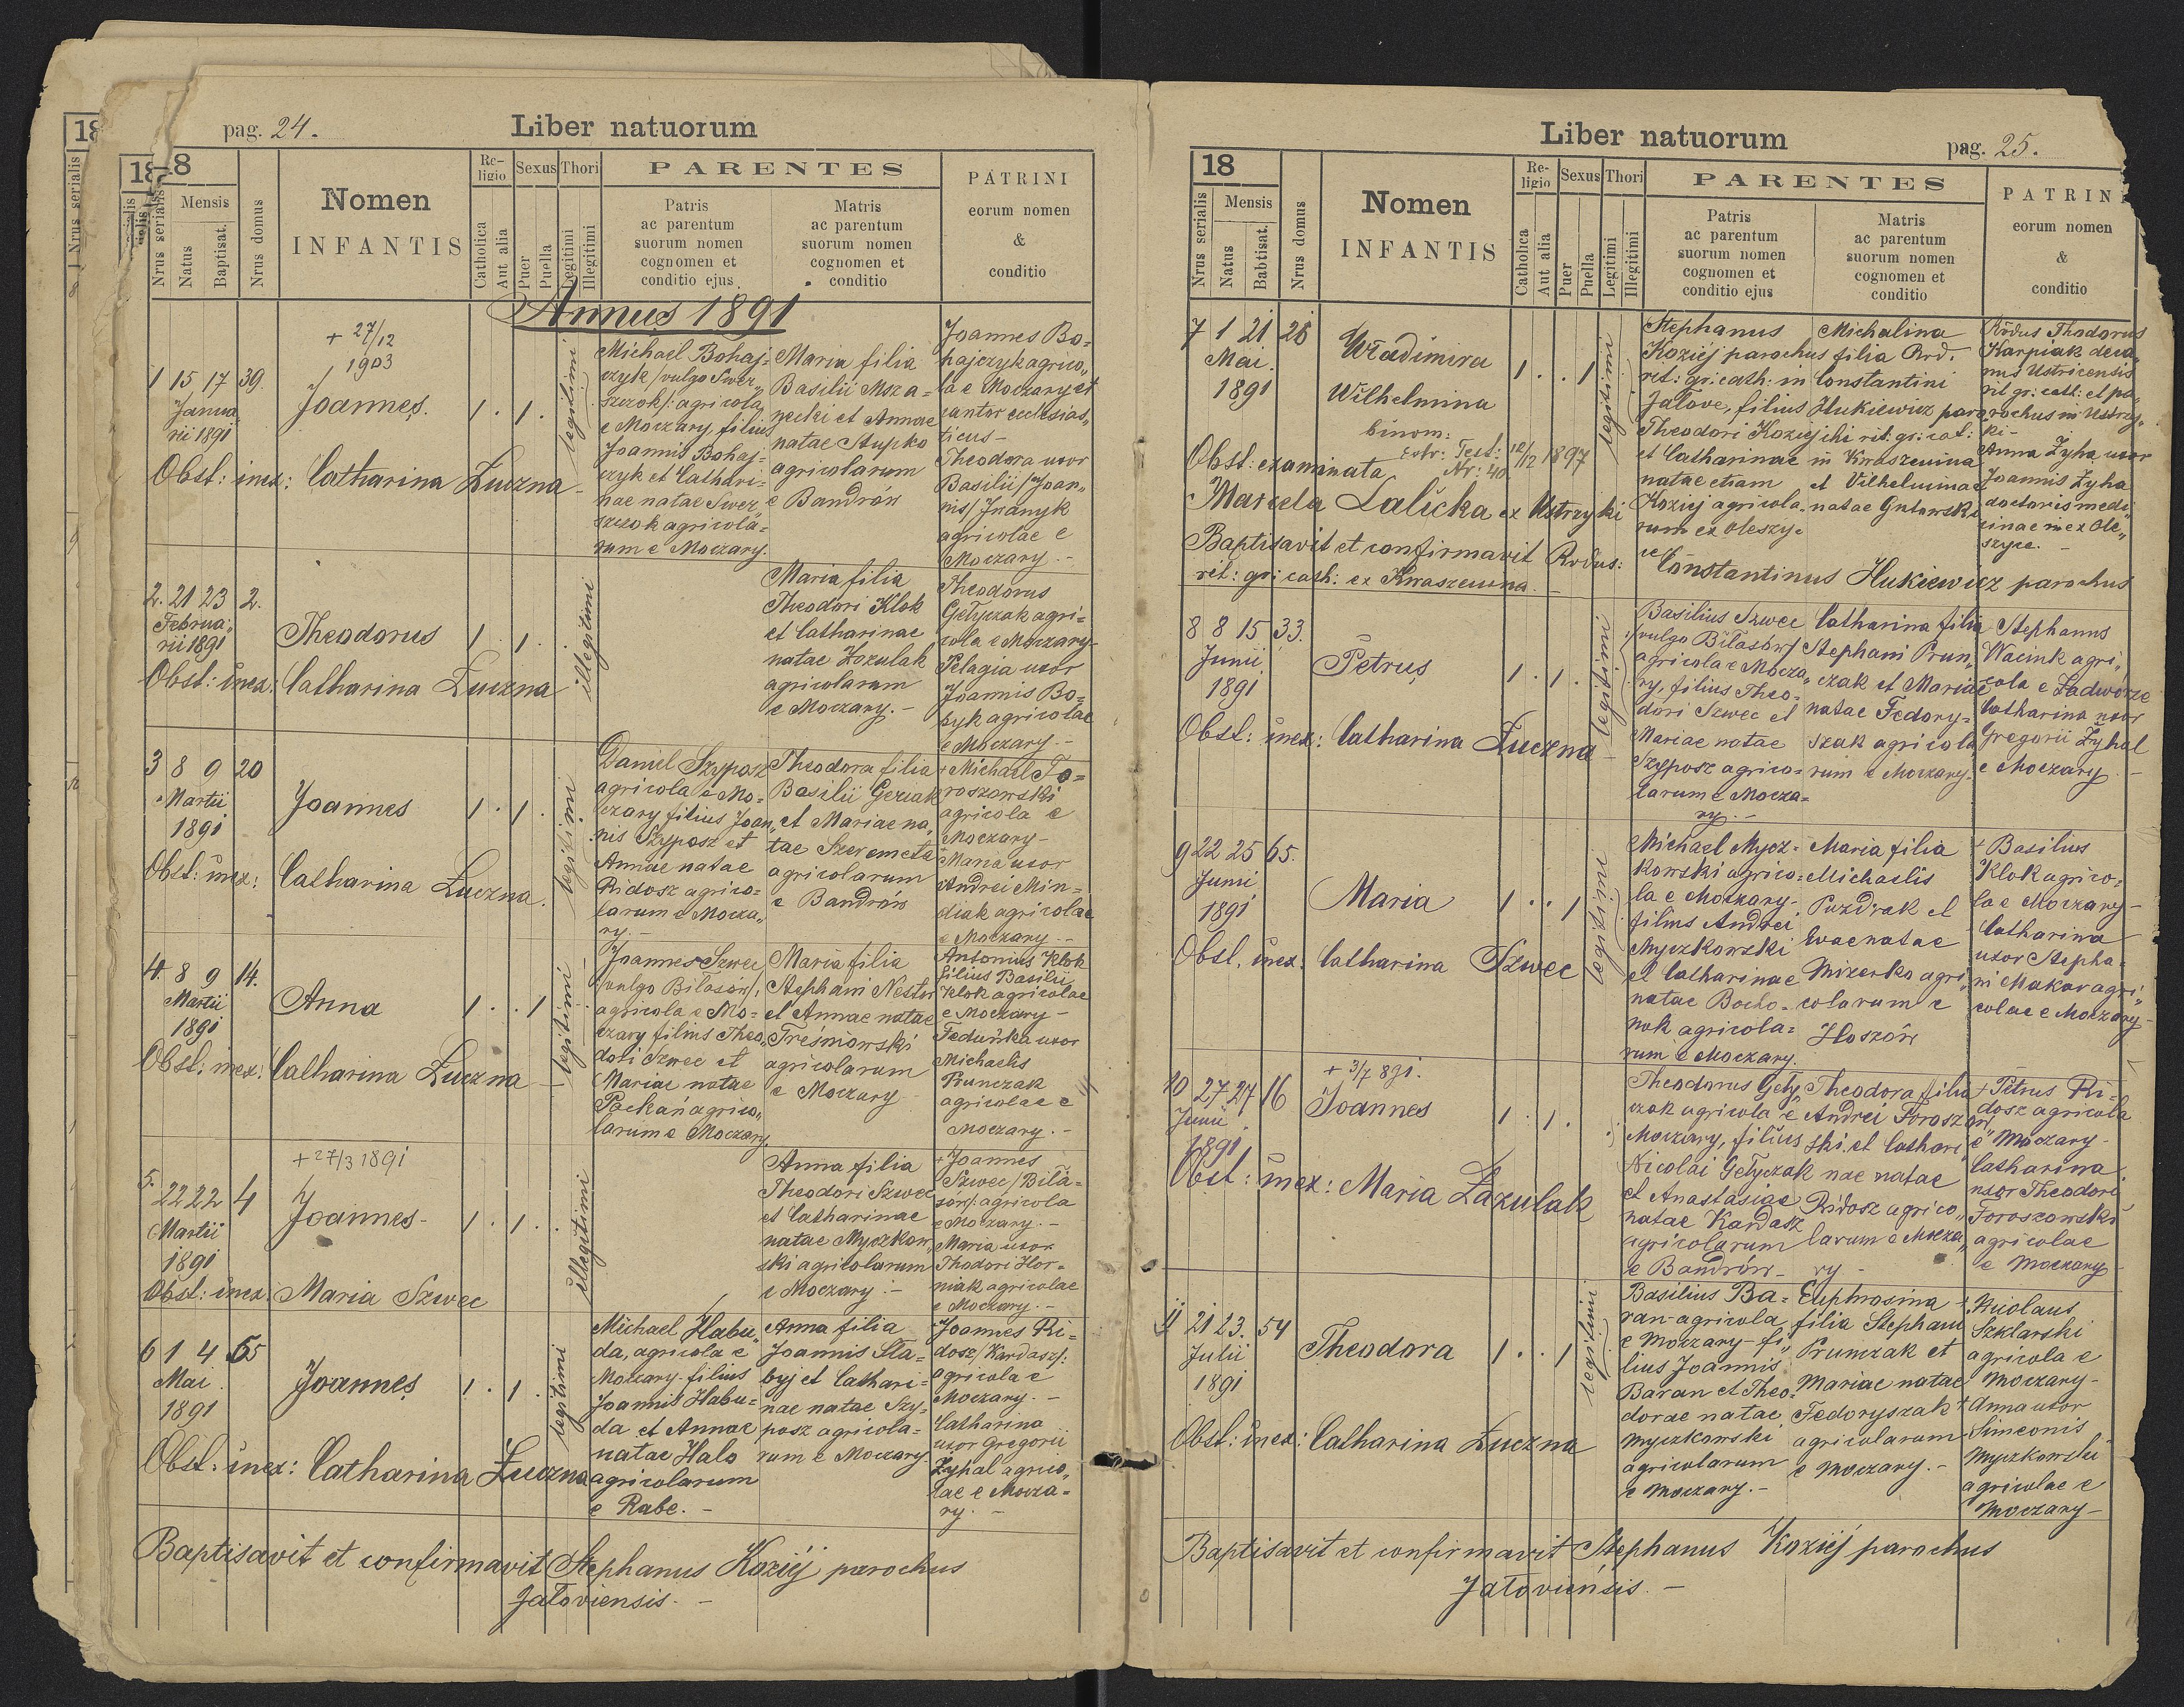 pag. 24.
Liber natuorum
18
Nrus serialis
Mensis
Natus
Baptisat.
Nrus domus
Nomen
INFANTIS
Re-
ligio
Catholica
Aut alia
Sexus
Puer
Puella
Thori
Legitimi
Illegitimi
PARENTES
Patris
ac parentum
suorum nomen
cognomen et
conditio ejus
Matris
ac parentum
suorum nomen
cognomen et
conditio
PATRINI
eorum nomen
&
conditio
Annus 1891
+ 27/12
1903
1 15 17 39.
Janua
rii 1891
Joannes.
1 . 1 .
legitimi
Obst: inex: Catharina Łuczna
Michael Bohaj=
czyk /vulgo Swer„
szczok/: agricola
e Moczary filius
Joannis Bohaj=
czyk et Cathari=
nae natae Swer„
szczok agricola=
rum e Moczary.
Maria filia
Basilii Msza=
necki et Annae
natae Stupko
agricolarum
e Bandrów
Joannes Bo=
hajczyk agrico„
la e Moczary et
cantor ecclesias„
ticus -
Theodora uxor
Basilii /Joan„
nis/ Iwanyk
agricolae e
Moczary. -
2. 21 23 2.
Februa„
rii 1891
Theodorus
1 . 1 .
illegitimi
Obst: inex: Catharina Łuczna
Maria filia
Theodori Klok
et Catharinae
natae Zozulak
agricolarum
e Moczary. -
Theodorus
Getyczak agri=
cola e Moczary
Pelagia uxor
Joannis Bo=
byk agricolae
e Moczary. -
3 8 9 20
Martii
1891
Joannes
1 . 1 .
legitimi
Obst: inex: Catharina Łuczna.
Daniel Szyposz
agricola e Mo=
czary filius Joan„
nis Szyposz et
Annae natae
Ridosz agrico=
larum e Mocza„
ry. -
Theodora filia
Basilii Geziak
et Mariae na„
tae Szeremeta
agricolarum
e Bandrów
+ Michael To=
roszowski
agricola e
Moczary -
Maria uxor
Andrei Min=
diak agricolae
e Moczary. -
4. 8 9 14.
Martii
1891
Anna
1 . . 1
legitimi
Obst: inex: Catharina Łuczna
Joannes Szwec
/vulgo Bilasów/,
agricola e Mo=
czary filius Theo„
dori Szwec et
Mariae natae
Packań agrico„
larum e Moczary.
Maria filia
Stephani Nestor
et Annae natae
Treśniowski
agricolarum
e Moczary
Antonius Klok
filius Basilii
Klok agricolae
e Moczary -
Feduńka uxor
Michaelis
Prunczak
agricolae e
Moczary. -
+ 27/3 1891
5.
22 22 4
Martii
1891
Joannes -
1 . 1 . .
illegitimi
Obst: inex. Maria Szwec
Anna filia
Theodori Szwec
et Catharinae
natae Myczkow„
ski agricolarum
e Moczary. -
+ Joannes
Szwec /Bila=
sów/: agricola
e Moczary. -
Maria uxor
Thodori Hor=
niak agricolae
e Moczary. -
6 1 4 65
Mai
1891
Joannes
1 . 1 .
legitimi
Obst: inex: Catharina Łuczna
Michael Habu„
da, agricola e
Moczary filius
Joannis Habu=
da et Annae
natae Halo
agricolarum
e Rabe. -
Anna filia
Joannis Sta=
byj et Cathari=
nae natae Szy„
posz agricola=
rum e Moczary.
Joannes Ri=
dosz /Kardasz/:
agricola e
Moczary. -
Catharina
uxor Gregorii
Zyhal agrico„
lae e Mocza=
ry. -
Baptisavit et confirmavit Stephanus Koziéj parochus
Jałoviensis. -
Liber natuorum
pag. 25.
18
Nrus serialis
Mensis
Natus
Babtisat.
Nrus domus
Nomen
INFANTIS
Re-
ligio
Catholica
Aut alia
Sexus
Puer
Puella
Thori
Legitimi
Illegitimi
PARENTES
Patris
ac parentum
suorum nomen
cognomen et
conditio ejus
Matris
ac parentum
suorum nomen
cognomen et
conditio
PATRIN
eorum nomen
&
conditio
7 1 21 26
Mai.
1891
Władimira
Wilhelmina
binom:
1 . . 1
legitimi
extr: Test: 12/12 1897
Nr: 40
Obst: examinata
Marcela Lalicka ex Ustrzyki
Baptisavit et confirmavit Rvdus:
rit: gr: cath: ex Kwaszenina. -
Constantinus Hukiewicz parochus
Stephanus
Koziéj parochus
rit: gr: cath: in
Jałove, filius
Theodori Koziéj
et Catharinae
natae etiam
Koziéj agricola=
rum ex Oleszy=
ce -
Michalina
filia Rvd.
Constantini
Hukiewicz paro
chi rit: gr: cat:
in Kwaszenina
et Vilhelminae
natae Gutowski
Rvdus Thodorus
Karpiak deca„
nus Ustricensis
rit gr: cath: et pa„
rochus in Ustrzy„
ki -
Anna Zyha uxor
Joannis Zyha
doctoris medi„
cinae in ex Ole„
szyce. -
8 8 15 33.
Junii
1891
Petrus
1 . 1 .
legitimi
Obst: inex: Catharina Łuczna
Basilius Szwec
/vulgo Bilasów/
agricola e Mocza„
ry, filius Theo=
dori Szwec et
Mariae natae
Szyposz agrico=
larum e Mocza=
ry. -
Catharina filia
Stephani Prun„
czak et Mariae
natae Fedory=
szak agricola
rum e Moczary.
Stephanus
Wacink agri„
cola e Zadwórze
Catharina uxor
Gregorii Zyhal
e Moczary. -
9 22 25 65.
Junii
1891
Maria
1 . . 1
legitimi
Obst. inex: Catharina Szwec
Michael Mycz=
kowski agrico=
la e Moczary-
filius Andrei
Myczkowski
et Catharinae
natae Bocho=
nok agricola=
rum e Moczary.
Maria filia
Michaelis
Puzdrak et
Evae natae
Mizerko agri„
colarum e
Hoszów
+ Basilius
Klok agrico=
la e Moczary -
Catharina
uxor Stepha=
ni Makar agri„
colae e Moczary -
+ 3/7 891.
10 27 27 16
Junii
1891
Joannes
1 . 1 .
Obst: inex: Maria Zazulak
Theodorus Gety„
czak agricola e
Moczary, filius
Nicolai Getyczak
et Anastasiae
natae Kardasz
agricolarum
e Bandrów -
Theodora filia
Andrei Toroszow
ski et Cathari„
nae natae
Ridosz agrico„
larum e Mocza„
ry -
+ Petrus Ri=
dosz agricola
e Moczary -
Catharina
uxor Theodori
Toroszowski
agricolae
e Moczary
11 21 23. 54
Julii
1891
Theodora
1 . . 1
legitimi
Obst: inex: Catharina Łuczna
Basilius Ba=
ran agricola
e Moczary - fi„
lius Joannis
Baran et Theo=
dorae natae
Myczkowski
agricolarum
e Moczary. -
Euphrosina
filia Stephani
Prunczak et
Mariae natae
Fedoryszak
agricolarum
e Moczary. -
+ Nicolaus
Szklarski
agricola e
Moczary -
+ Anna uxor
Simeonis
Myczkowski
agricolae e
Moczary -
Baptisavit et confirmavit Stephanus Koziéj parochus
Jałoviensis. -